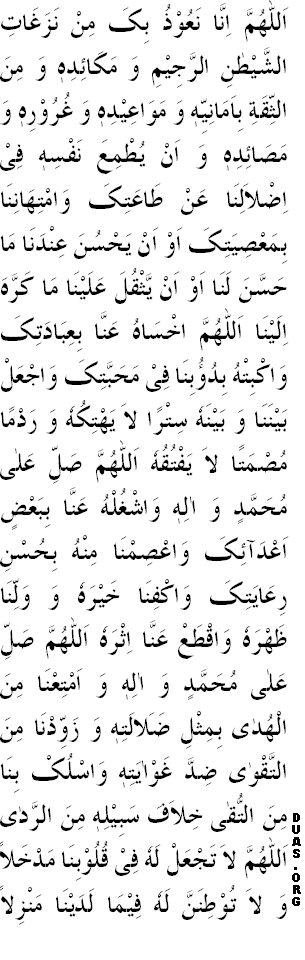 اَللّٰهُمَّ اِنَّا نَعُوْذُ بِکَ مِنْ نَزَغَاتِ
الشَّيْطٰنِ الرَّجِيْمِ وَ مَكَائِدِهٖ وَ مِنَ
الثِّقَةِ بِاَمَانِيِّهٖ وَ مَوَاعِيْدِهٖ وَ غُرُوْرِهٖ وَ
مَصَائِدِهٖ وَ اَنْ يُطْمِعَ نَفْسَهٖ فِیْ
اِضْلَالِنَا عَنْ طَاعَتِکَ وَامْتِهَانِنَا
بِمَعْصِيَتِکَ اَوْ اَنْ يَحْسُنَ عِنْدَنَا مَا
حَسَّنَ لَنَا اَوْ اَنْ يَّثْقُلَ عَلَيْنَا مَا كَرَّهَ
اِلَيْنَا اَللّٰهُمَّ اخْسَاهُ عَنَّا بِعِبَادَتِکَ
وَاكْبِتْهُ بِدُؤُبِنَا فِیْ مَحَبَّتِکَ وَاجْعَلْ
بَيْنَنَا وَ بَيْنَهٗ سِتْرًا لاَ يَهْتِكُهٗ وَ رَدْمًا
مُصْمَتًا لاَ يَفْتُقُهٗ اَللّٰهُمَّ صَلِّ عَلٰى
مُحَمَّدٍ وَ اٰلِهٖ وَاشْغُلْهُ عَنَّا بِبَعْضِ
اَعْدَآئِکَ وَاعْصِمْنَا مِنْهُ بِحُسْنِ
رِعَايَتِکَ وَاكْفِنَا خَيْرَهٗ وَ وَلِّنَا
ظَهْرَهٗ وَاقْطَعْ عَنَّا اِثْرَهٗ اَللّٰهُمَّ صَلِّ
عَلٰى مُحَمَّدٍ وَ اٰلِهٖ وَ اَمْتِعْنَا مِنَ
الْهُدٰى بِمِثْلِ ضَلَالَتِهٖ وَ زَوِّدْنَا مِنَ
التَّقْوٰى ضِدَّ غَوَايَتِهٖ وَاسْلُکْ بِنَا
مِنَ التُّقٰى خِلَافَ سَبِيْلِهٖ مِنَ الرَّدٰى
اَللّٰهُمَّ لاَ تَجْعَلْ لَهٗ فِیْ قُلُوْبِنَا مَدْخَلاً
وَ لاَ تُوْطِنَنَّ لَهٗ فِيْمَا لَدَيْنَا مَنْزِلاً
DUAS.ORG